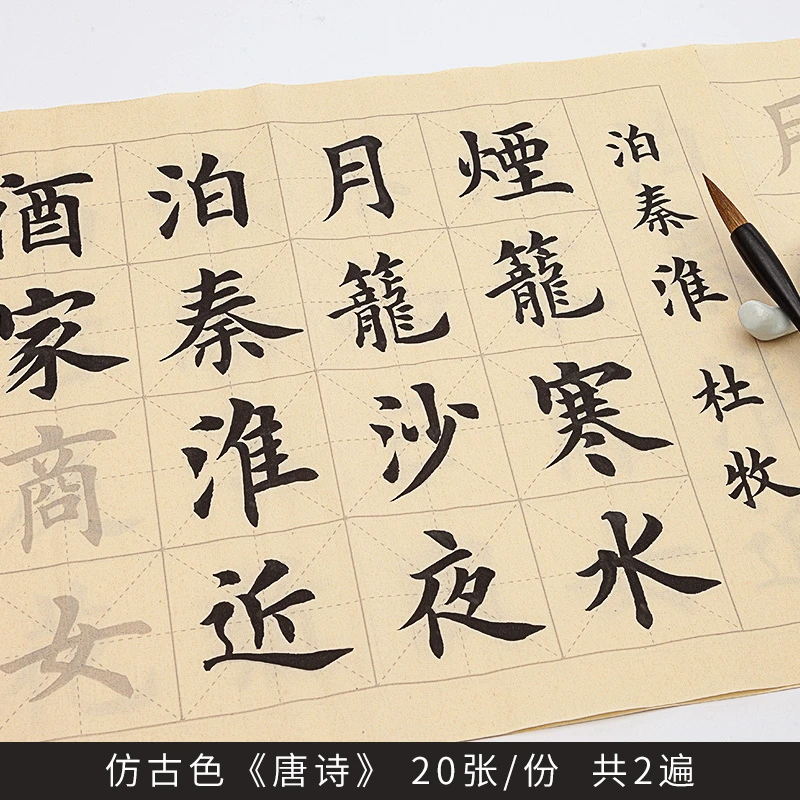 泊秦淮 杜牧
煙籠寒水
月籠沙夜
泊秦淮近
酒家商女
仿古色《唐诗》 20张/份 共2遍